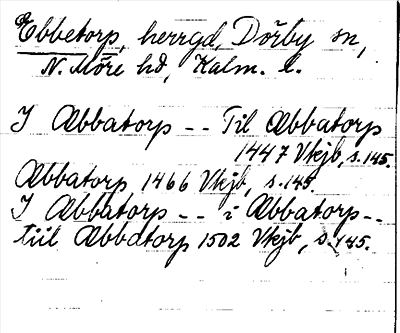 Ebbetorp, herrgd, Dörby sn,
N. Möre hd, Kalm. l.
I Æbbatorp -- Til Æbbatorp
1447 Vkjb, s. 145.
Æbbatorp 1466 Vkjb, s. 145.
I Æbbatorp -- i Æbbatorp --
tiil Æbbatorp 1502 Vkjb, s. 145.